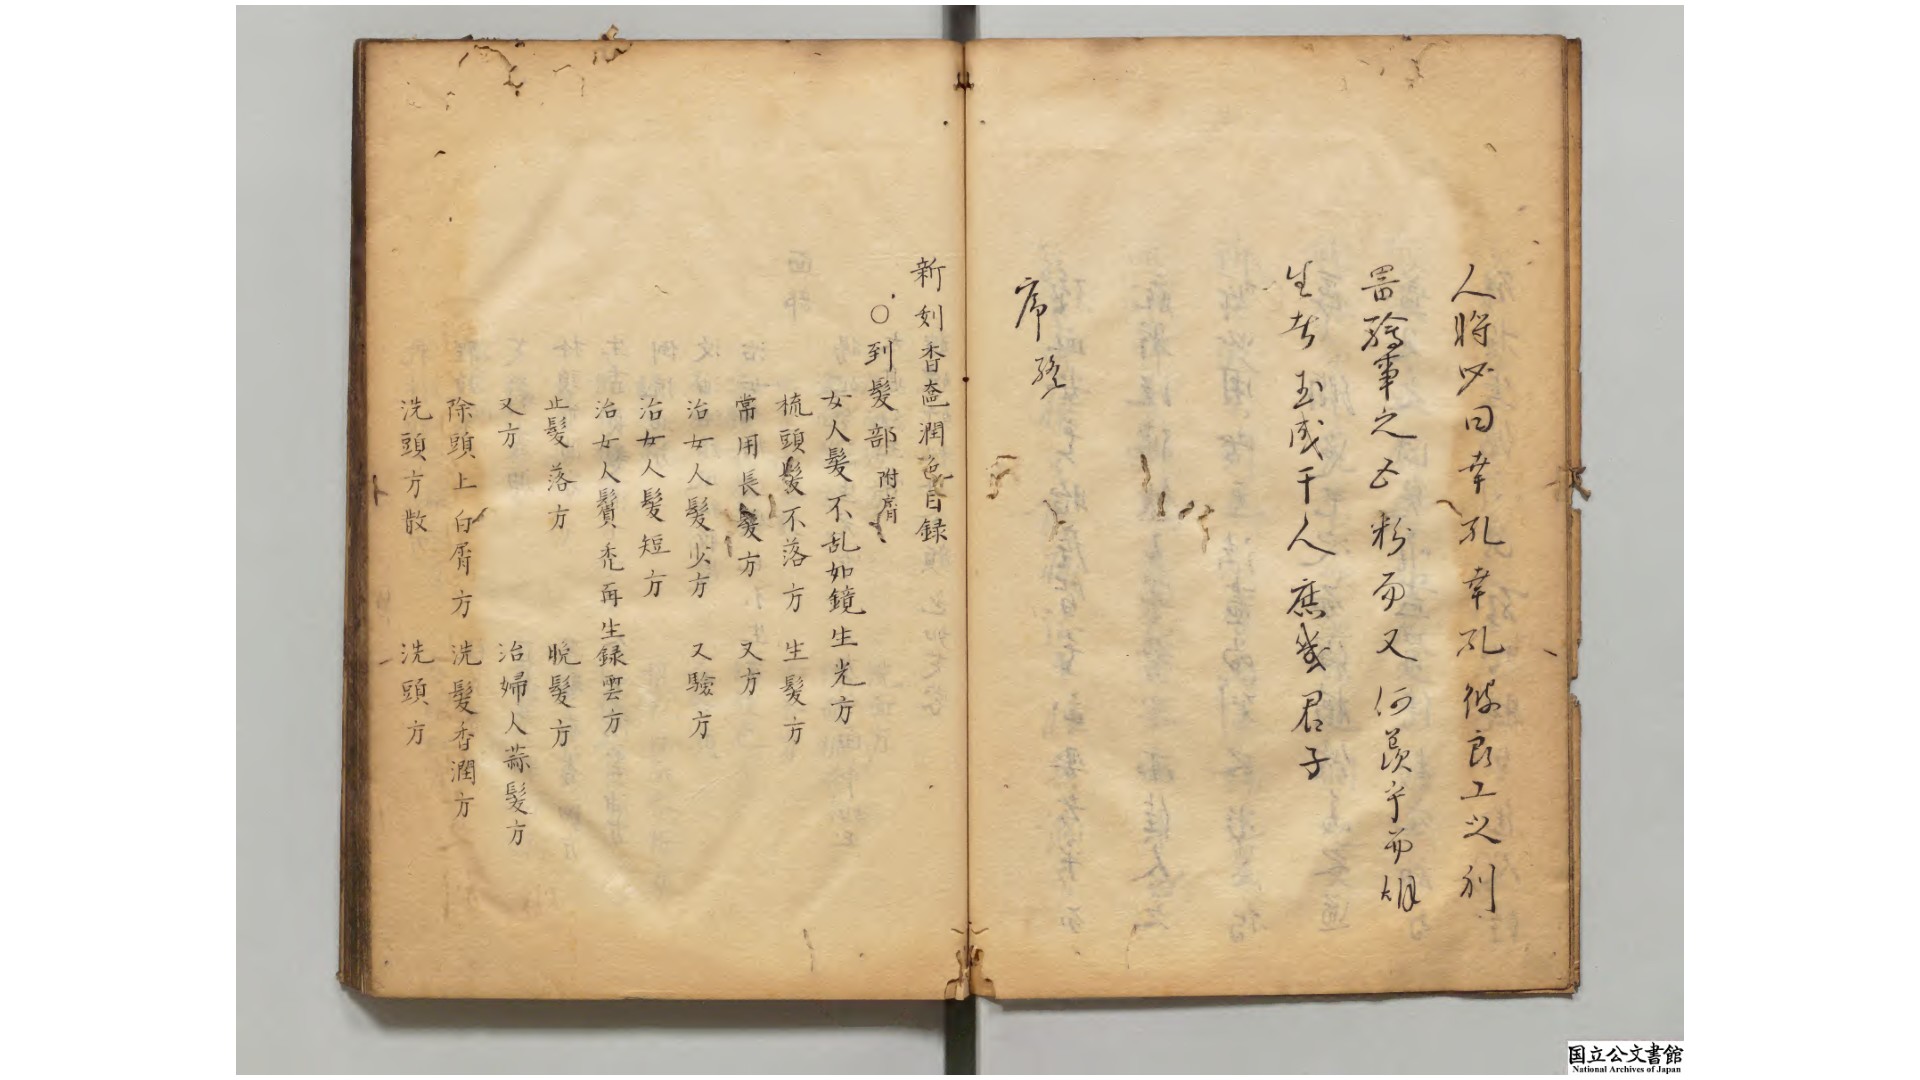 人将必曰幸孔幸孔彼良工之刑
之丕粉而又何羨乎而胡
生者玉成千人庶幾君子
序終
新刻香奩潤色目録
○到髮部附膚
女人髮不乱如鏡生光方
梳頭髮不落方 生髮方
常用長髮方 又方
治女人髮少方 又驗方
治女人髮短方
治女人鬢禿再生録雲方
止髮落方 脫髮方
又方 治婦人蒜髮方
除頭上白屑方 洗髮香潤方
洗頭方散 洗頭方
国立公文書館
National Archives of Japan